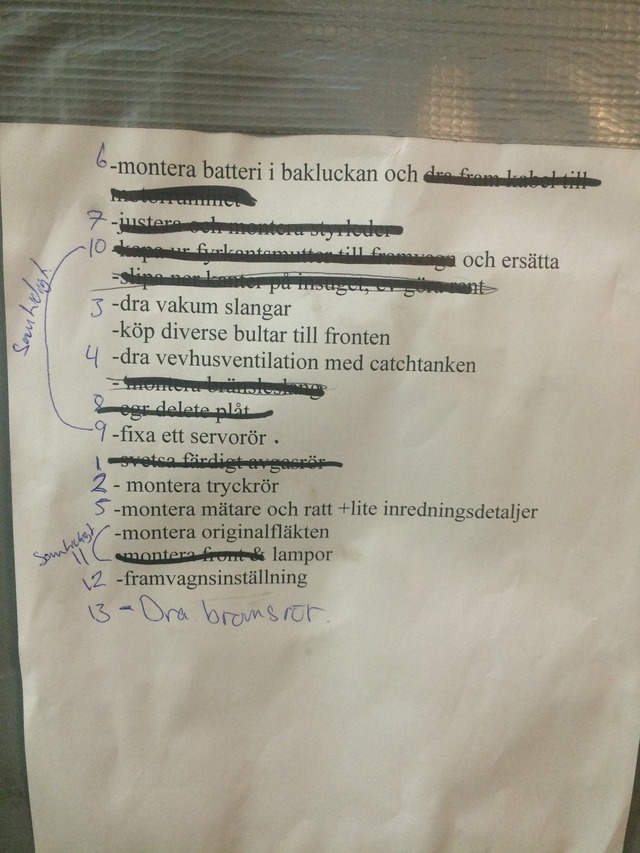 6 -montera batteri i bakluckan och dra fram kabel till
motorrummet
7 -justera och montera styrleder
10 -kapa ur fyrkantsmutter till framvagn och ersätta
-slipa ner kanter på insuget, ev göra rent
3 -dra vakum slangar
-köp diverse bultar till fronten
4 -dra vevhusventilation med catchtanken
- montera bränsleslang
8 -egr delete plåt
9 -fixa ett servorör .
1 -svetsa färdigt avgasrör
2 - montera tryckrör
5 -montera mätare och ratt +lite inredningsdetaljer
-montera originalfläkten
11 -montera front & lampor
12 -framvagnsinställning
13 -Dra bromsrör.